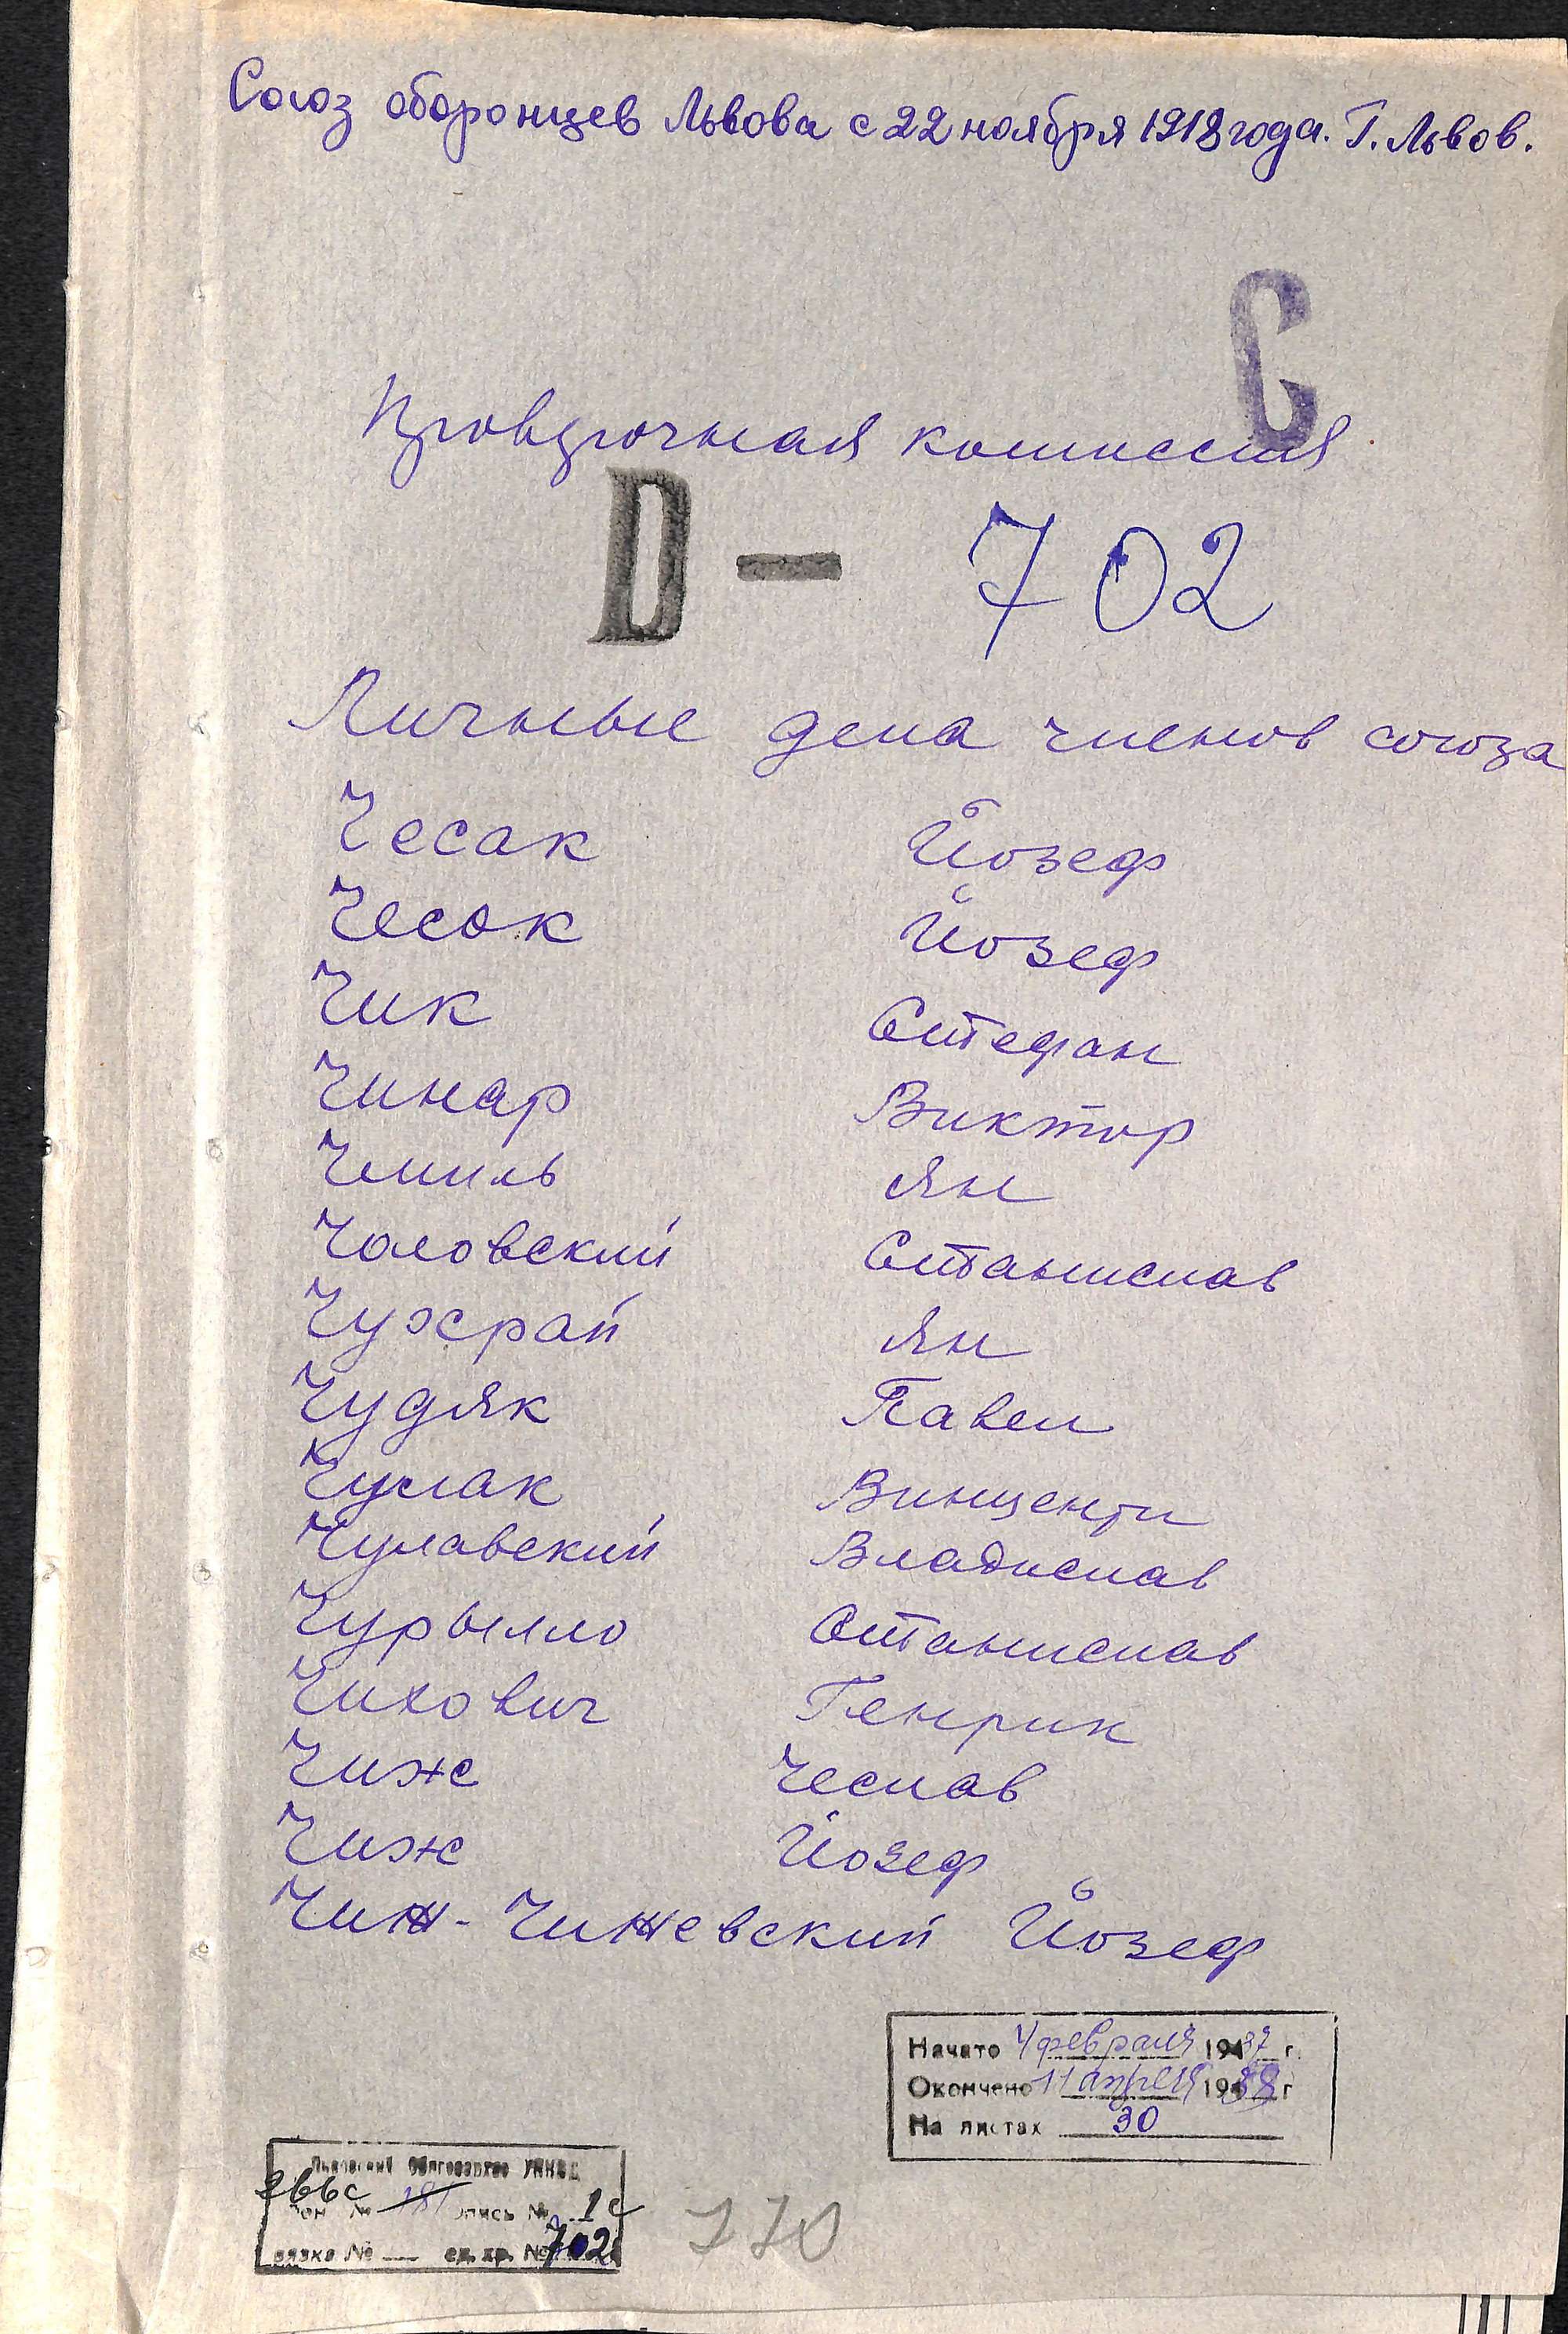 Союз оборонцев Львова с 22 ноября 1918 года. Г. Львов.
С
Проверочная комиссия
D — 702
Личные дела членов союза
Чесак Йозеф
Чесок Йозеф
Чик Стефан
Чинар Виктор
Чмиль Ян
Чоловский Станислав
Чужрай Ян
Чудяк Павел
Чулак Винценти
Чулавский Владислав
Чурылло Станислав
Чихович Генрик
Чиж Чеслав
Чиж Йозеф
Чиж-Чижевский Йозеф
Начато 4 февраля 1937 г.
Окончено 11 апреля 1938 г
На листах 30
Львовский Облгосархив УНКВД
266с
Фон № 181 опись № 1с
вязка № — ед. хр. № 702
770